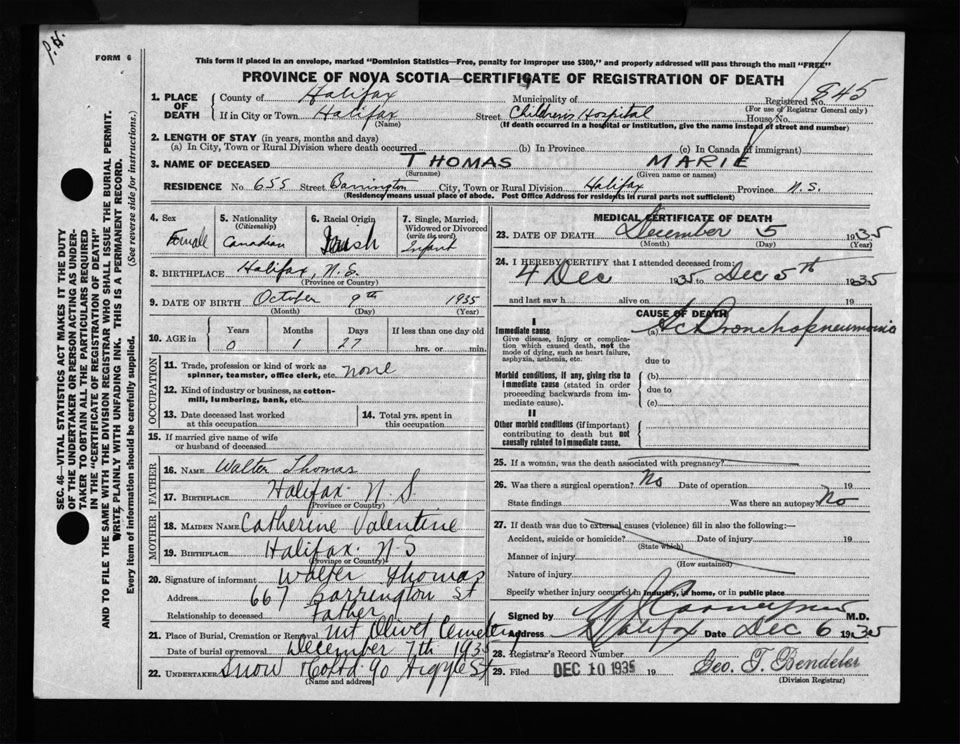 P.H.
FORM 6
This form if placed in an envelope, marked "Dominion Statistics—Free, penalty for improper use $300," and properly addressed will pass through the mail "FREE"
PROVINCE OF NOVA SCOTIA—CERTIFICATE OF REGISTRATION OF DEATH
1. PLACE OF DEATH County of Halifax Municipality of Registered No. 845
(For use of Registrar General only)
If in City or Town Halifax Street Childrens Hospital House No.
(Name) (If death occurred in a hospital or institution, give the name instead of street and number)
2. LENGTH OF STAY (in years, months and days)
(a) In City, Town or Rural Division where death occurred (b) In Province (c) In Canada (if immigrant)
3. NAME OF DECEASED THOMAS MARIE
(Surname) (Given name or names)
RESIDENCE No. 655 Street Barrington City, Town or Rural Division Halifax Province N.S.
(Residency means usual place of abode. Post Office Address for residents in rural parts not sufficient)
4. Sex Female
5. Nationality (Citizenship) Canadian
6. Racial Origin
7. Single, Married, Widowed or Divorced (write the word) Infant
8. BIRTHPLACE Halifax, N.S.
(Province or Country)
9. DATE OF BIRTH October 9th 1935
(Month) (Day) (Year)
10. AGE in Years Months Days If less than one day old
0 1 27 hrs. or min.
OCCUPATION
11. Trade, profession or kind of work as spinner, teamster, office clerk, etc. none
12. Kind of industry or business, as cotton-mill, lumbering, bank, etc.
13. Date deceased last worked at this occupation
14. Total yrs. spent in this occupation
15. If married give name of wife or husband of deceased
FATHER
16. NAME Walter Thomas
17. BIRTHPLACE Halifax N.S.
(Province or Country)
MOTHER
18. MAIDEN NAME Catherine Valentine
19. BIRTHPLACE Halifax N-S
(Province or Country)
20. Signature of informant Walter Thomas
Address 667 Barrington St
Relationship to deceased Father
21. Place of Burial, Cremation or Removal Mt Olivet Cemetery
Date of burial or removal December 7th 1935
22. UNDERTAKER Snow & Co Ltd 90 Argyle St
(Name and address)
MEDICAL CERTIFICATE OF DEATH
23. DATE OF DEATH December 5 1935
(Month) (Day) (Year)
24. I HEREBY CERTIFY that I attended deceased from:
4 Dec 1935 to Dec 5th 1935
and last saw h alive on 19
CAUSE OF DEATH
I
Immediate cause (a) Ac Bronchopneumonia
Give disease, injury or complication which caused death, not the mode of dying, such as heart failure, asphyxia, asthenia, etc.
due to
Morbid conditions, if any, giving rise to immediate cause (stated in order proceeding backwards from immediate cause).
(b)
due to
(c)
II
Other morbid conditions (if important) contributing to death but not causally related to immediate cause.
25. If a woman, was the death associated with pregnancy?
26. Was there a surgical operation? No Date of operation 19
State findings Was there an autopsy? No
27. If death was due to external causes (violence) fill in also the following:—
Accident, suicide or homicide? Date of injury 19
(State which)
Manner of injury
(How sustained)
Nature of injury
Specify whether injury occurred in industry, in home, or in public place
Signed by M.D.
Address Halifax Date Dec 6 1935
28. Registrar's Record Number
29. Filed DEC 10 1935 19 Geo. T. Bendeler
(Division Registrar)
SEC. 46—VITAL STATISTICS ACT MAKES IT THE DUTY
OF THE UNDERTAKER OR PERSON ACTING AS UNDER-
TAKER TO OBTAIN ALL THE PARTICULARS REQUIRED
IN THE "CERTIFICATE OF REGISTRATION OF DEATH"
AND TO FILE THE SAME WITH THE DIVISION REGISTRAR WHO SHALL ISSUE THE BURIAL PERMIT.
WRITE PLAINLY WITH UNFADING INK. THIS IS A PERMANENT RECORD.
Every item of information should be carefully supplied. (See reverse side for instructions.)